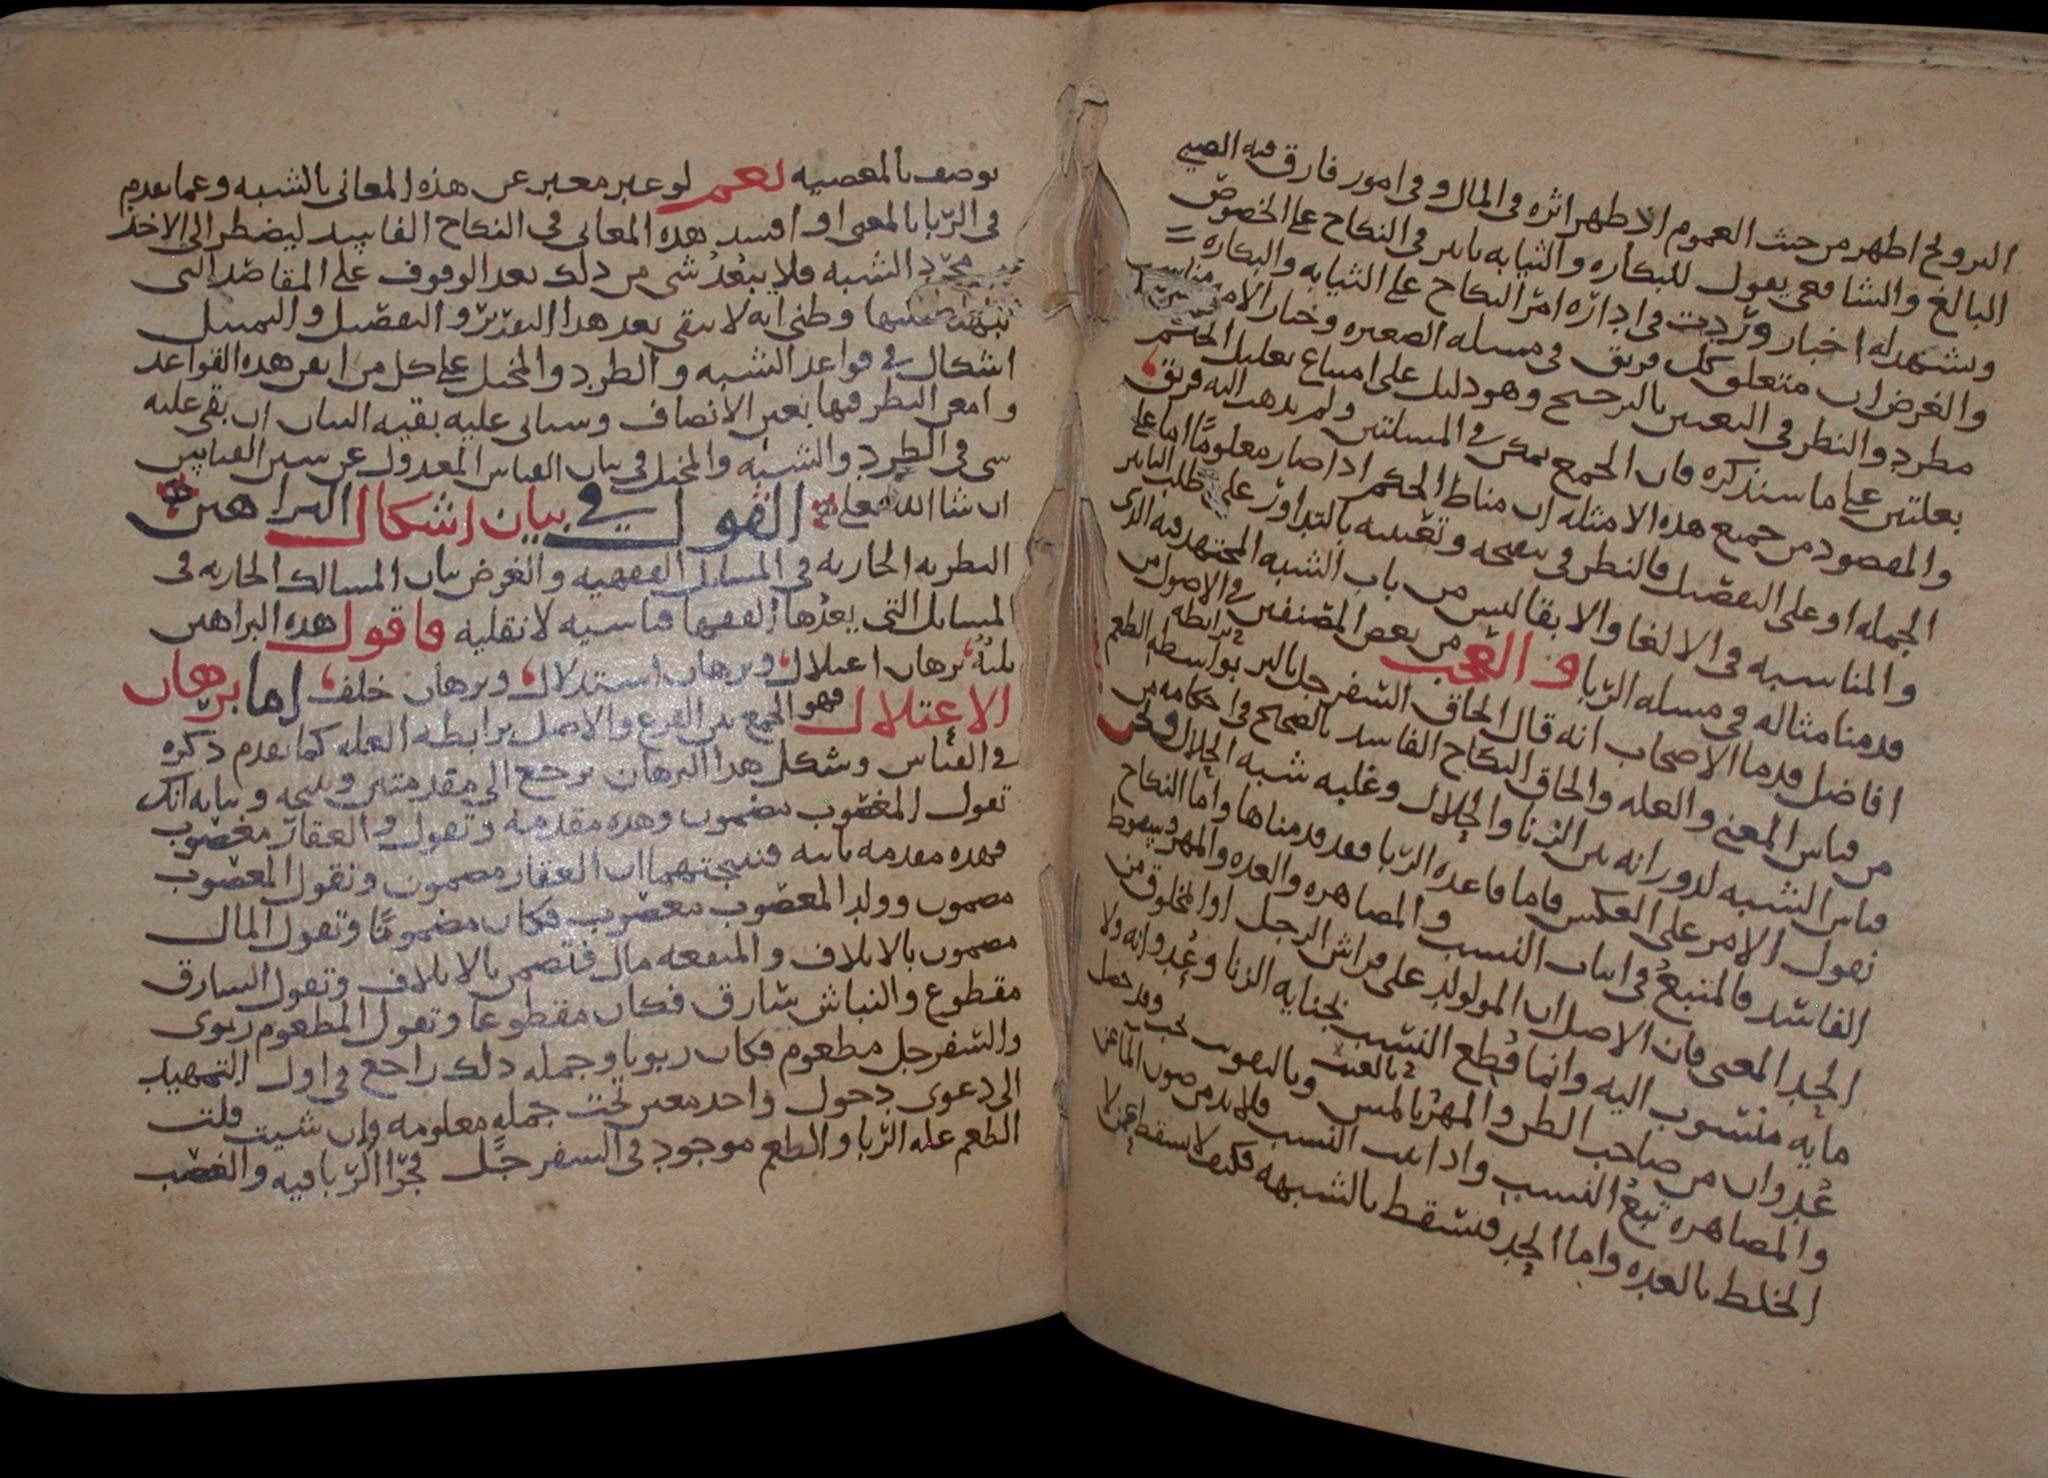 التزويج اظهر من حيث العموم الا ظهر اثره في المال و في امور فارق فيه الصبي
البالغ والشافعي يقول للبكاره والثيابه تاثير في النكاح على الخصوص
ويشهد له اخبار وردت في ادارة امر النكاح على الثيابه والبكاره
والغرض ان متعلق كل فريق في مسله الصغيره وخيار الامه مناسب
مطرد والنظر في التعيين بالترجيح وهو دليل على امتناع تعليل الحكم
بعلتين على ما سنذكره فان الجمع ممكن في المسلتين ولم يذهب اليه فريق
والمقصود من جميع هذه الامثله ان مناط الحكم اذا صار معلومًا اما على
الجمله او على التفصيل فالنظر في تنقيحه وتقييده بالتداور على طلب التاثير
والمناسبه في الالغا والابقا ليس من باب الشبه المجتهد فيه الذي
قدمنا مثاله في مسله الربا و العجب من بعض المصنفين في الاصول من
افاضل قدما الاصحاب انه قال الحاق السفرجل بالبر بواسطه الطعم برابطه
من قياس المعنى والعله والحاق النكاح الفاسد بالصحيح في احكامه من
قياس الشبه لدورانه بين الزنا والحلال وغلبه شبه الحلال ونحن
نقول الامر على العكس فاما قاعده الربا فقد قدمناها واما النكاح
الفاسد فالمتبع في اثبات النسب والمصاهره والعده والمهر وسقوط
الحد المعنى فان الاصل ان المولود على فراش الرجل او المخلوق من
مايه منسوب اليه وانما قطع النسب بجنايه الزنا وعدوانه ولا
عدوان من صاحب الظن والمهر بالمس وبالتفويت يجب وقد حصل
والمصاهره تتبع النسب واذا ثبت النسب فلا بد من صون الما عن
الخلط بالعده واما الحد فيسقط بالشبهه فكيف لا يسقط
يوصف بالمعصيه نعم لو عبر معبر عن هذه المعاني بالشبه وعما تقدم
في الربا بالمعنى او افسد هذه المعاني في النكاح الفاسد ليضطر الى الاخذ
مجرد الشبه فلا يبعد شي من ذلك بعد الوقوف على المقاصد التي
نبهت عليها وظني انه لا يبقى بعد هذا التقرير والتفصيل والتمثيل
اشكال في قواعد الشبه والطرد والمخيل على كل من اتقن هذه القواعد
وامعن النظر فيها بعين الانصاف وسياتي عليه بقيه البيان ان بقي عليه
شي في الطرد والشبه والمخيل في بيان القياس المعدول عن سنن القياس
ان شا الله تعلى القول في بيان اشكال البراهين
النظريه الجاريه في المسايل الفقهيه والغرض بيان المسالك الجاريه في
المسايل التي يعدها الفقها قياسيه لا نقليه فاقول هذه البراهين
ثلثة برهان اعتلال وبرهان استدلال وبرهان خلف اما برهان
الاعتلال فهو الجمع بين الفرع والاصل برابطه العله كما تقدم ذكره
في القياس وشكل هذا البرهان يرجع الى مقدمتين ونتيجه وبيانه انك
تقول المغصوب مضمون وهذه مقدمة وتقول والعقار مغصوب
فهذه مقدمه ثانيه فنتيجتهما ان العقار مضمون وتقول المغصوب
مضمون وولد المغصوب مغصوب فكان مضمونًا وتقول المال
مضمون بالاتلاف والمنفعه مال فتضمن بالاتلاف وتقول السارق
مقطوع والنباش سارق فكان مقطوعا وتقول المطعوم ربوي
والسفرجل مطعوم فكان ربويا وجمله ذلك راجع في اول التمهيد
الى دعوى دخول واحد معين تحت جمله معلومه وان شيت قلت
الطعم عله الربا والطعم موجود في السفرجل فجرا الربا فيه والغصب